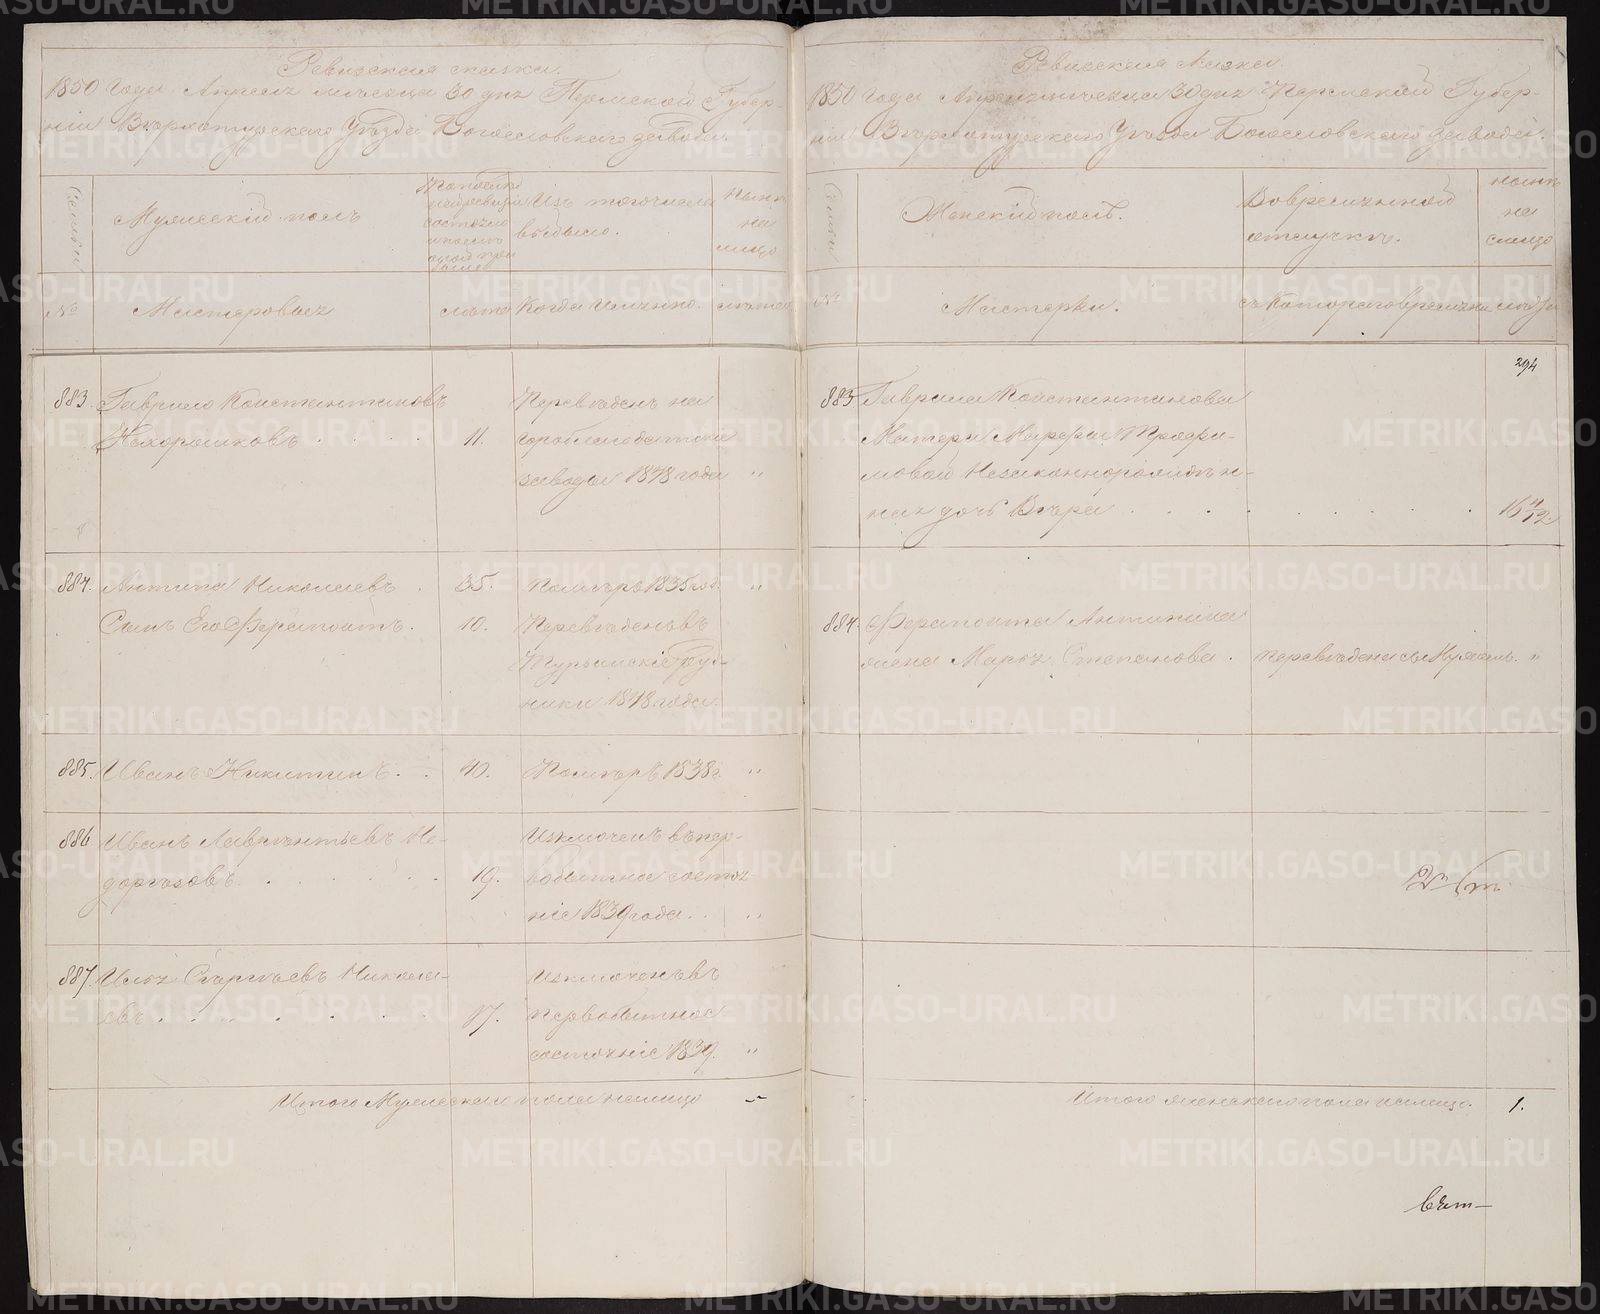 Ревизская сказка.
1850 года Апреля мѣсяца 30 дня Пермской Губер-
нiи Верхотурскаго Уѣзда Богословскаго завода.
Семьи
Мужескiй полъ
Изъ того числа
выбыло.
Нынѣ
на
лицо
№
Мастеровыя
лѣта
Когда именно.
лѣта
883.
Гаврило Константиновъ
Нехорошковъ . . . .
11.
Переведенъ на
завода 1848 года "
884.
Антипа Николаевъ .
35.
Померъ 1835 год. "
Сынъ Его Ферапонтъ.
10.
Переведенъ въ
Турьинскiе руд-
ники 1848 года.
885.
Иванъ Никитинъ. .
40.
Померъ 1838 г "
886
Иванъ Лаврентьевъ Не-
дорезовъ . . . . .
19.
Изключенъ въ пер-
вобытное состоя-
нiе 1839 года. . "
887.
Илья Сергѣевъ Никола-
евъ . . . . . .
17.
Изключенъ въ
первобытное
состоянiе 1839. "
Итого Мужеска пола налицо –
Ревизская сказка.
1850 года Апреля мѣсяца 30 дня Пермской Губер-
нiи Верхотурскаго Уѣзда Богословскаго завода.
Семьи
Женскiй полъ.
Во временной
отлучкѣ.
Нынѣ
на
лицо
№
Мастерки.
съ котораго времени
лѣта
294
883
Гаврила Константинова
Матери Марфы Трофи-
мовой Незаконнорожден-
ная дочь Вера . . . . . . .
16 4/12
884.
Ферапонта Антипина
жена Марья Степанова .
переведена съ Мужемъ. "
Итого женскаго пола налицо.
1.